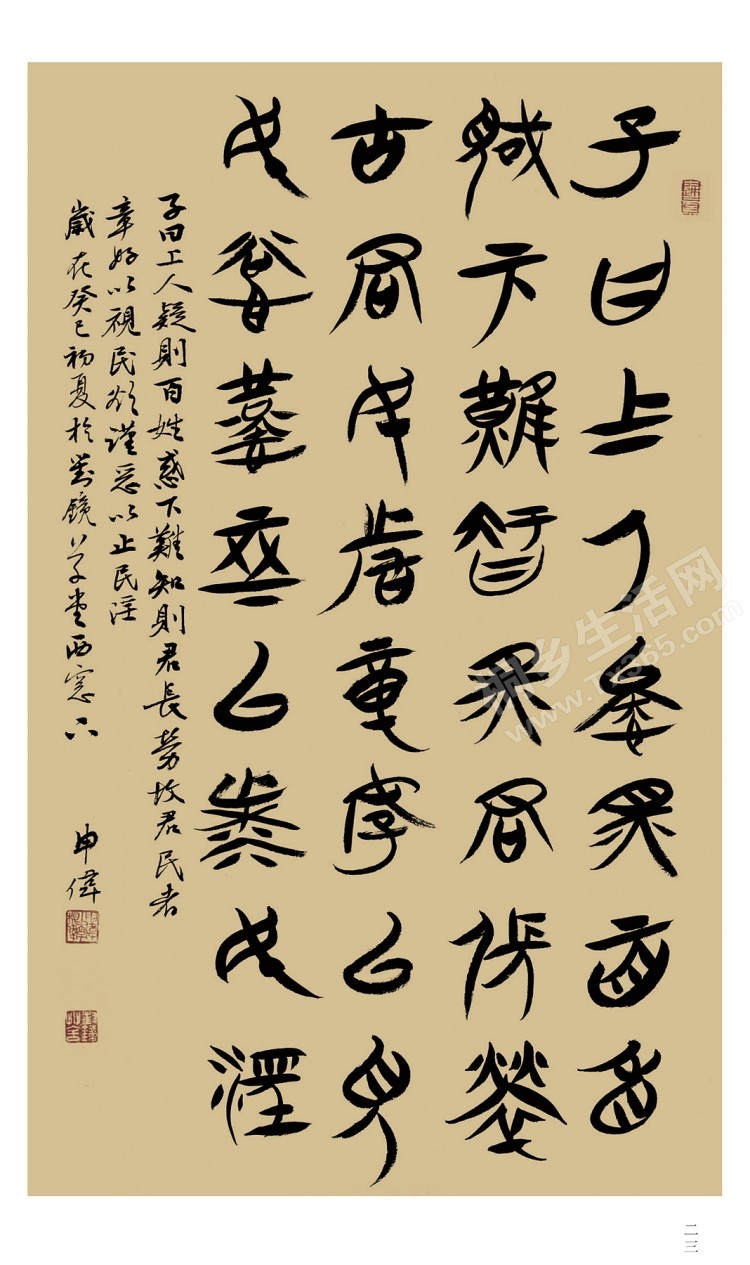 子曰上人疑則百姓
惑下難知則君長勞
古君民者章好以視
民欲謹惡以止民淫
子曰上人疑則百姓惑下難知則君長勞故君民者
章好以視民欲謹惡以止民淫
歲在癸巳初夏於對鏡草堂西窗下
申偉
桐乡生活网
www.Tx365.com
二三